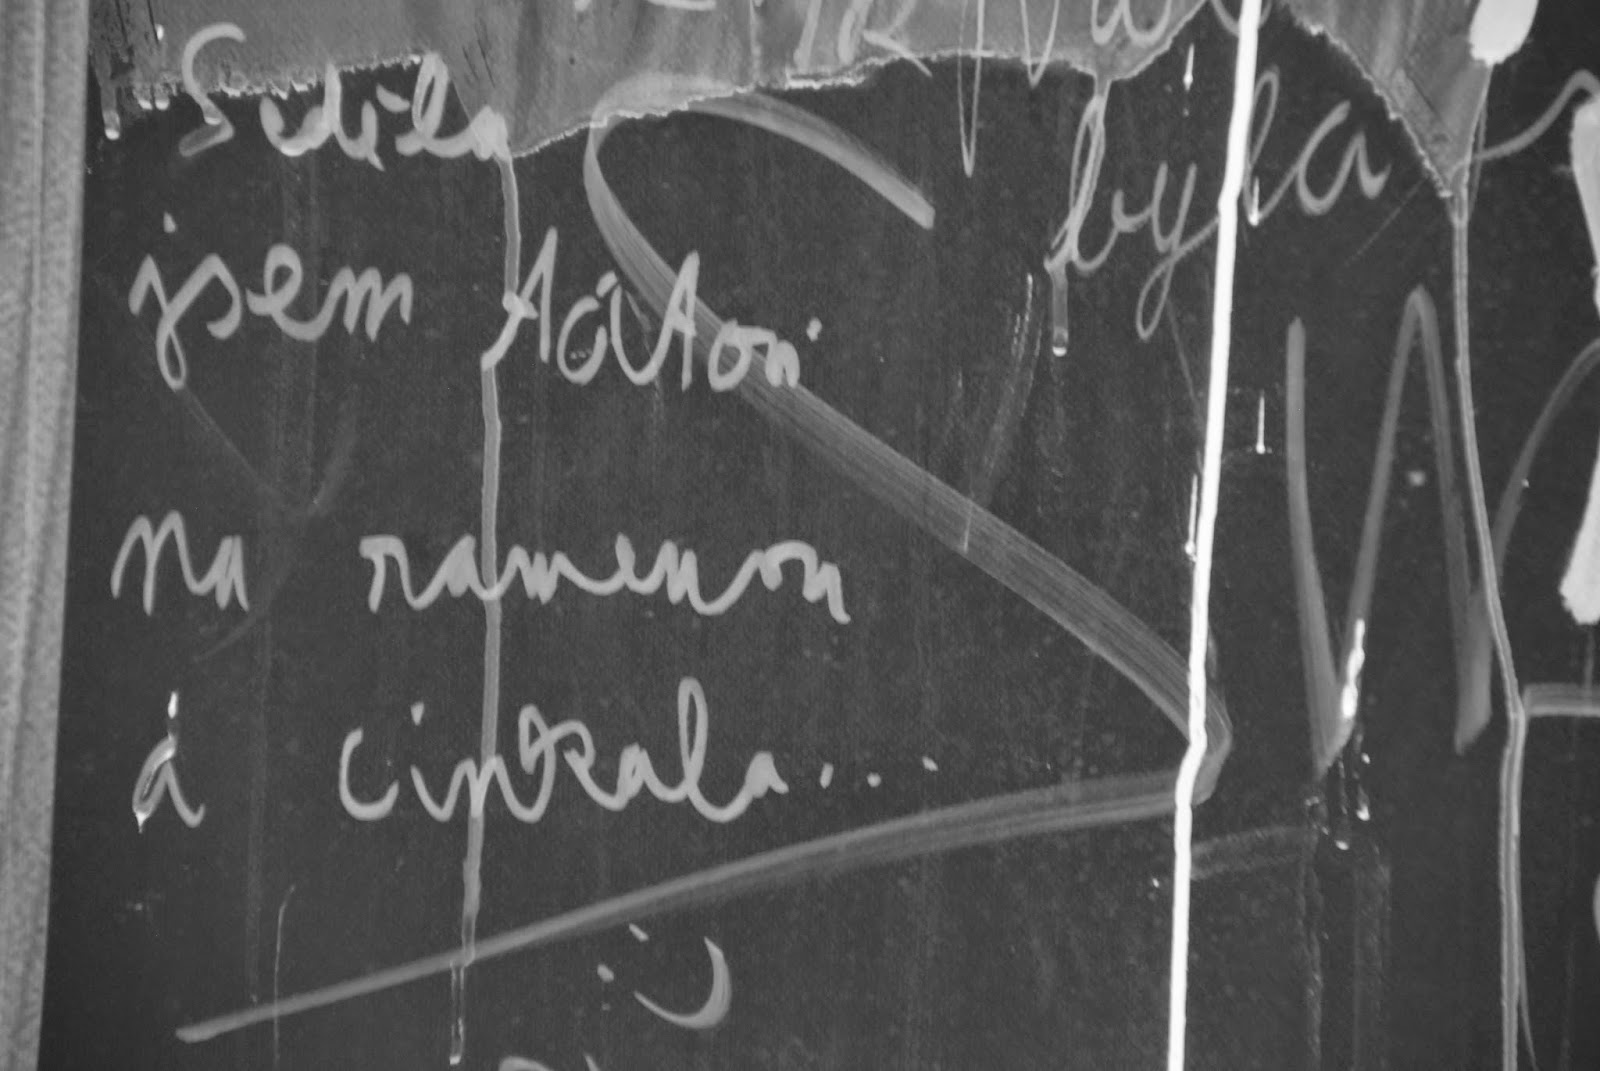 Seděla
jsem tátovi
na ramenou
a cinkala...
byla